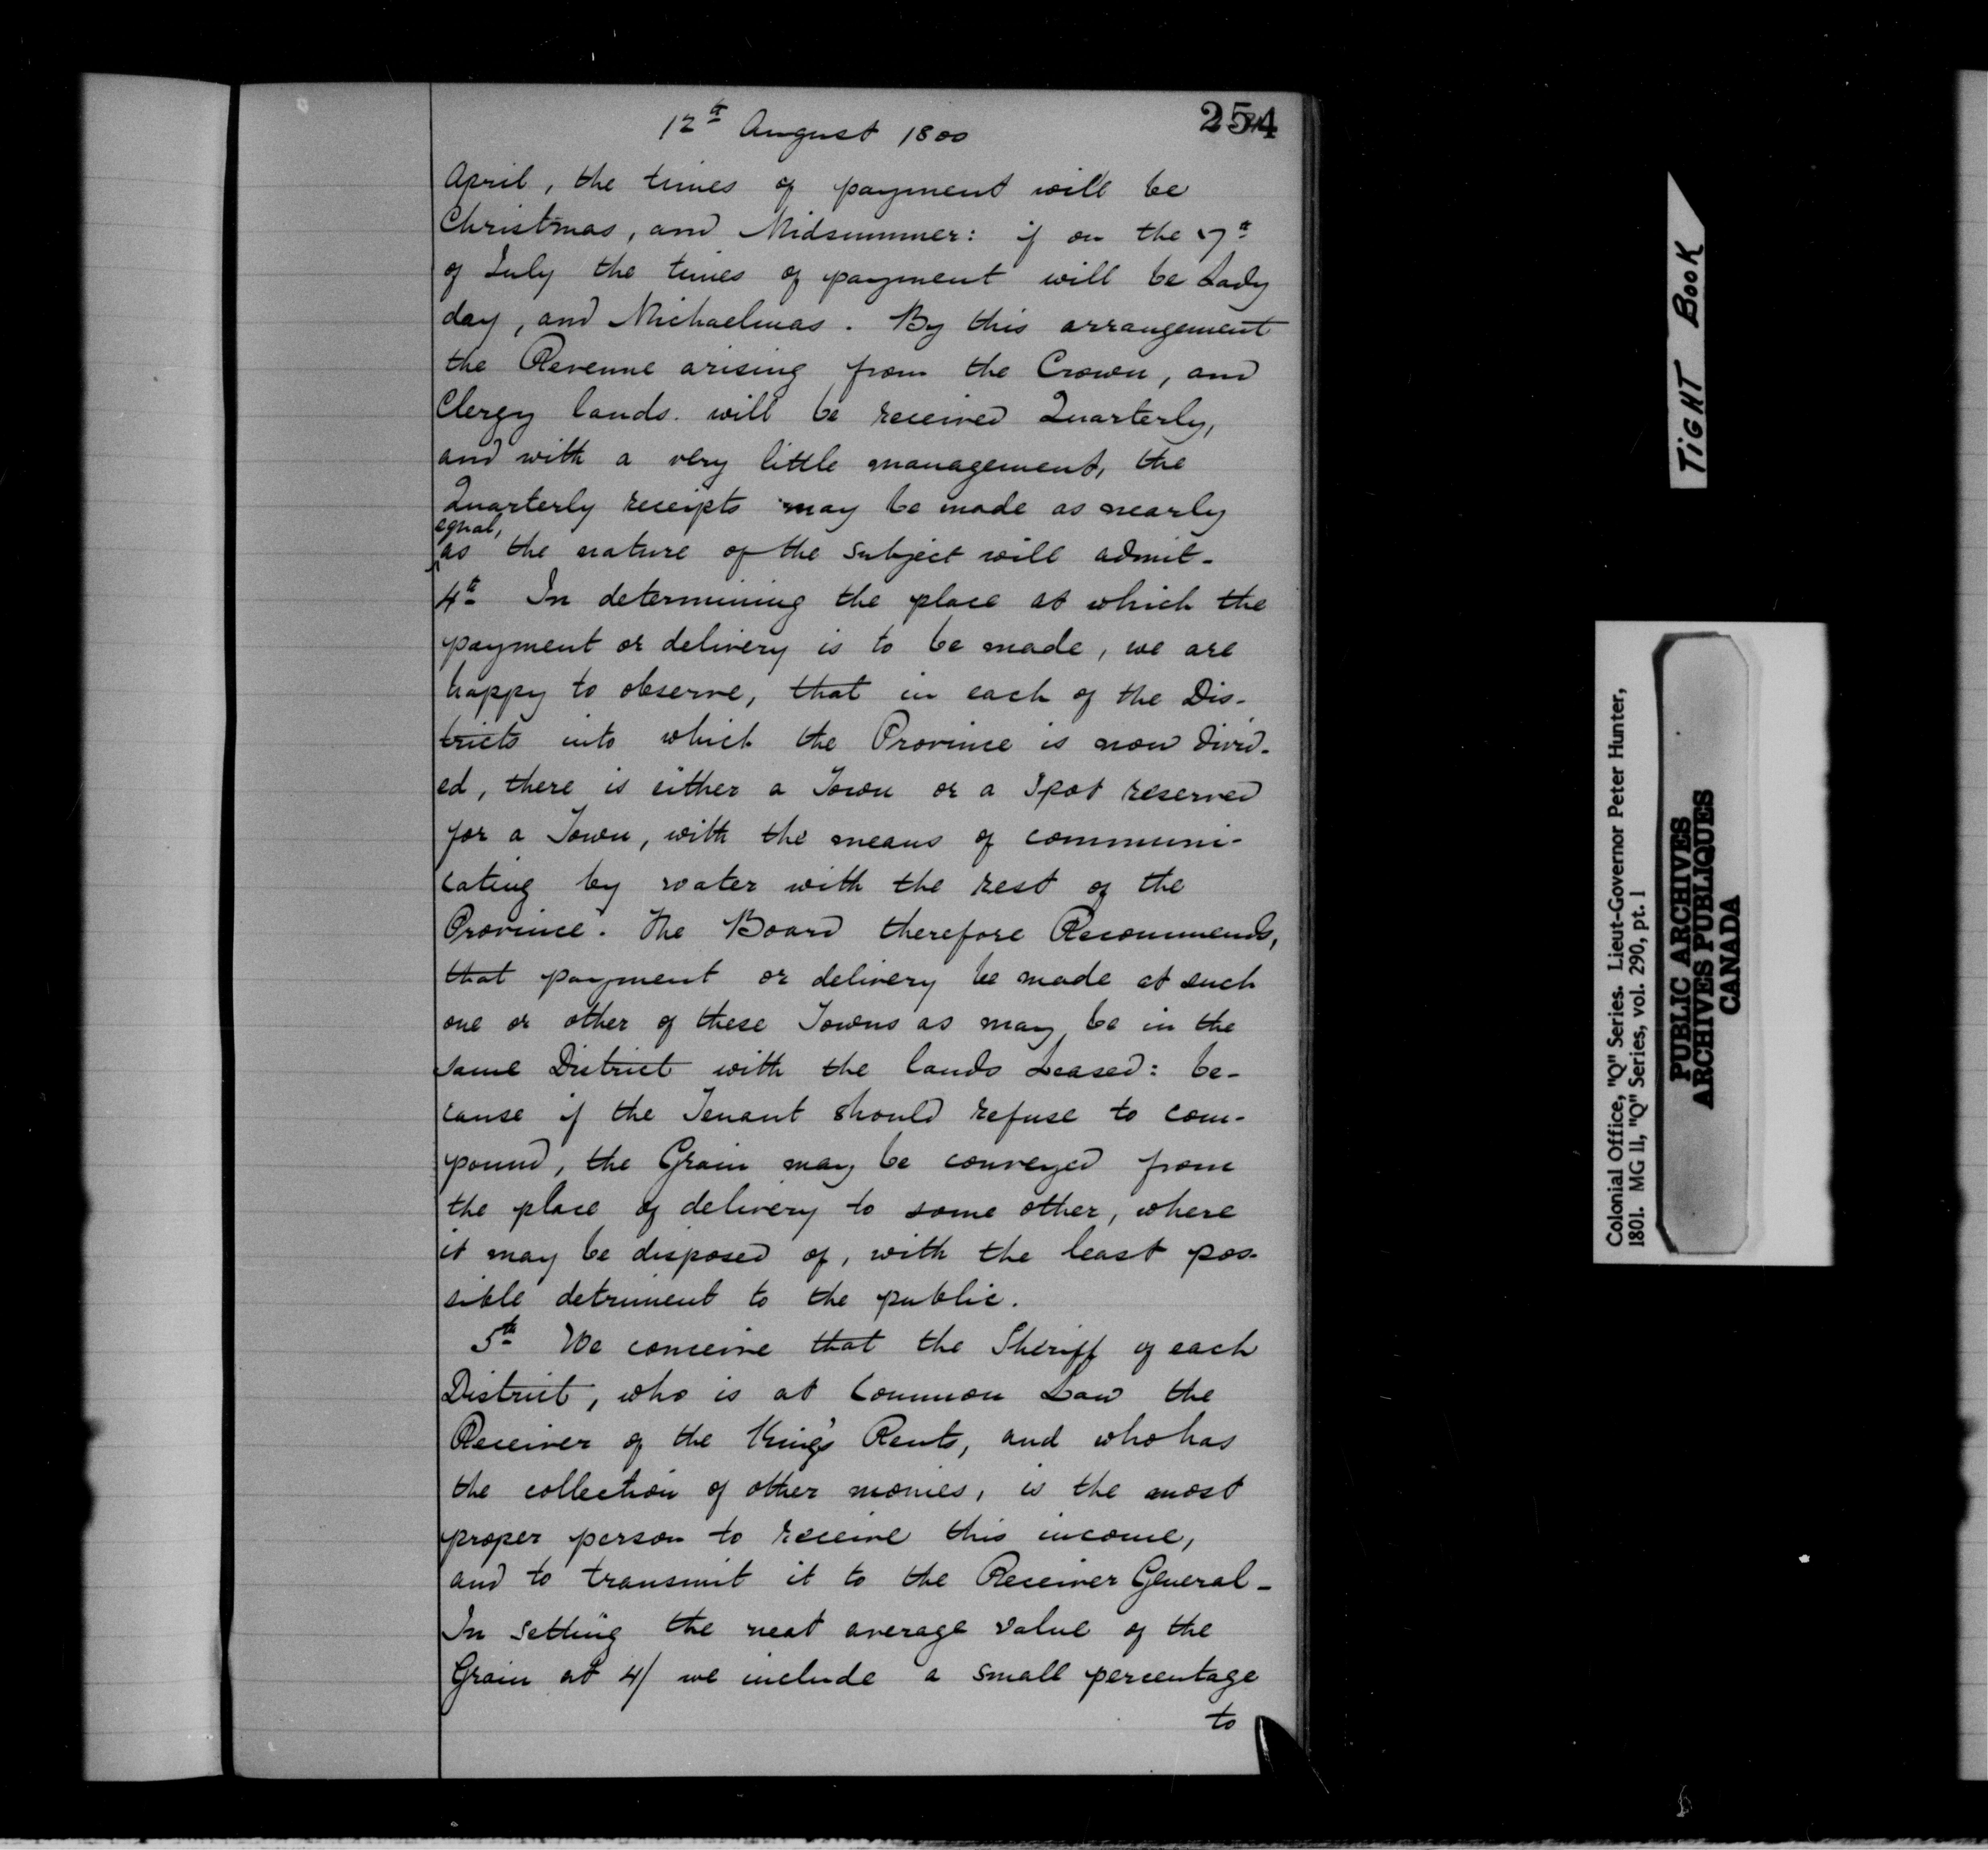 254
12th August 1800
April, the times of payment will be
Christmas, and Midsummer: if on the 7th
of July the times of payment will be Lady
day, and Michaelmas. By this arrangement
the Revenue arising from the Crown, and
Clergy lands. will be received Quarterly,
and with a very little management, the
Quarterly receipts may be made as nearly
equal,
as the nature of the subject will admit-
4th In determining the place at which the
payment or delivery is to be made, we are
happy to observe, that in each of the Dis-
tricts into which the Province is now divid-
ed, there is either a Town or a Spot reserved
for a Town, with the means of communi-
cating by water with the rest of the
Province. The Board therefore Recommends,
that payment or delivery be made at such
one or other of these Towns as may be in the
same District with the lands Leased: be-
cause if the Tenant should refuse to com-
pound, the Grain may be conveyed from
the place of delivery to some other, where
it may be disposed of, with the least pos-
sible detriment to the public.
5th We conceive that the Sheriff of each
District, who is at Common Law the
Receiver of the King's Rents, and who has
the collection of other monies, is the most
proper person to receive this income,
and to transmit it to the Receiver General-
In setting the neat average value of the
Grain at 4/ we include a small percentage
to
TIGHT BOOK
Colonial Office, "Q" Series. Lieut-Governor Peter Hunter,
1801. MG 11, "Q" Series, vol. 290, pt. 1
PUBLIC ARCHIVES
ARCHIVES PUBLIQUES
CANADA